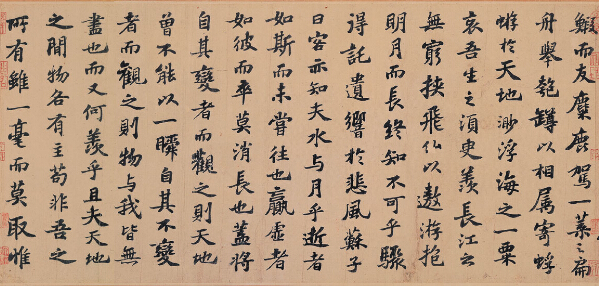 鰕而友麋鹿駕一葉之扁
舟舉匏罇以相属寄蜉
蝣於天地渺浮海之一粟
哀吾生之須臾羨長江之
無窮挾飛仙以遨游抱
明月而長終知不可乎驟
得託遺響於悲風蘇子
曰客亦知夫水与月乎逝者
如斯而未嘗往也贏虛者
如彼而卒莫消長也蓋將
自其變者而觀之則天地
曾不能以一瞬自其不變
者而觀之則物与我皆無
盡也而又何羨乎且夫天地
之間物各有主苟非吾之
所有雖一毫而莫取惟